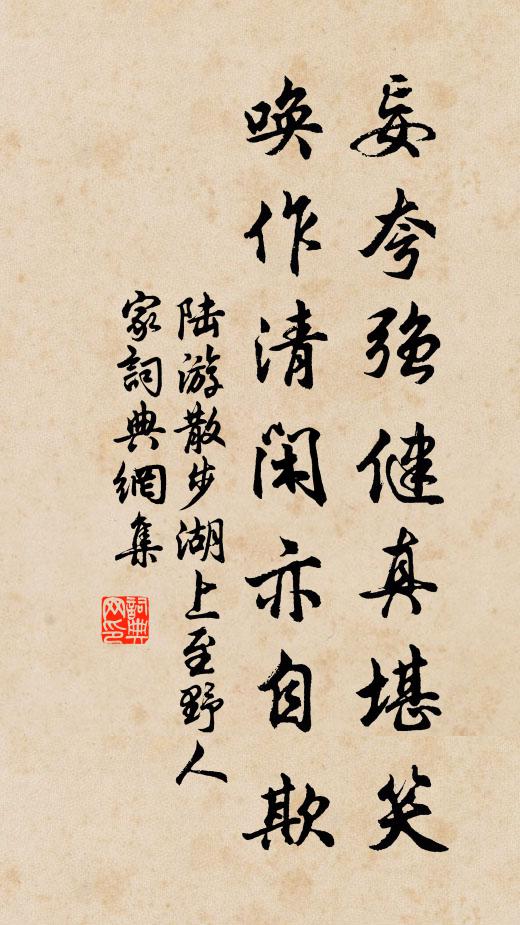 妄夸强健真堪笑
唤作清闲亦自欺
陆游散步湖上至野人
家詞典網集
詞典
网印